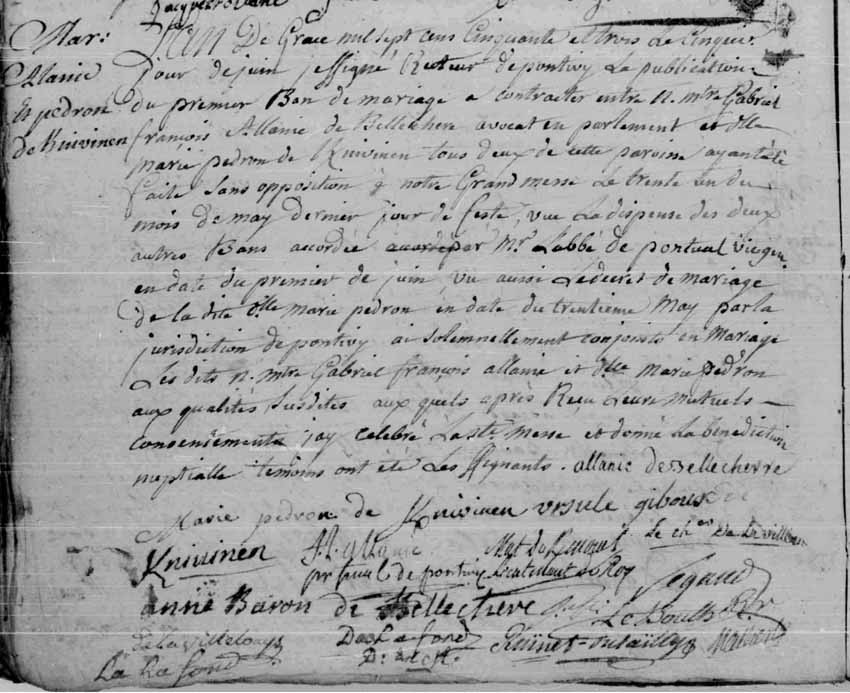 Mar:
Alanic
Et pedron
de Knivinen
L'an De Grace mil sept cens Cinquante et trois Le Cinquie.
jour de juin je ssigné Recteur de pontivy La publication
du premier Ban de mariage a contracter entre n. mtre Gabriel
françois Allanic de Bellechere avocat en parlement et dlle
marie pedron de Knivinen tous deux de cette paroisse ayant été
faite sans opposition à notre Grand messe Le trente un du
mois de may dernier jour de feste, vue La dispense des deux
autres Bans accordée par Mr. L'abbé de pontual Vic gen.
en date du premier de juin, vu aussi Le decret de mariage
de la dite dlle marie pedron en date du trentieme May par la
jurisdiction de pontivy ai solemnellement conjoints en Mariage
Les dits n. mtre Gabriel françois allanic et dlle Marie pedron
aux qualités susdites aux quels après Reçu Leurs mutuels
consentements j'ay celebré La ste Messe et donné La bénédiction
nuptialle temoins ont été Les ssignants. allanic de Bellecherre
Marie pedron de Knivinen ursule giboux
Knivinen allanic Le cher De La ville
de pontivy Lieutenant du Roy
anne Baron de Bellechere Le Boulh Rr
de la villeloays De La fond
La La fond